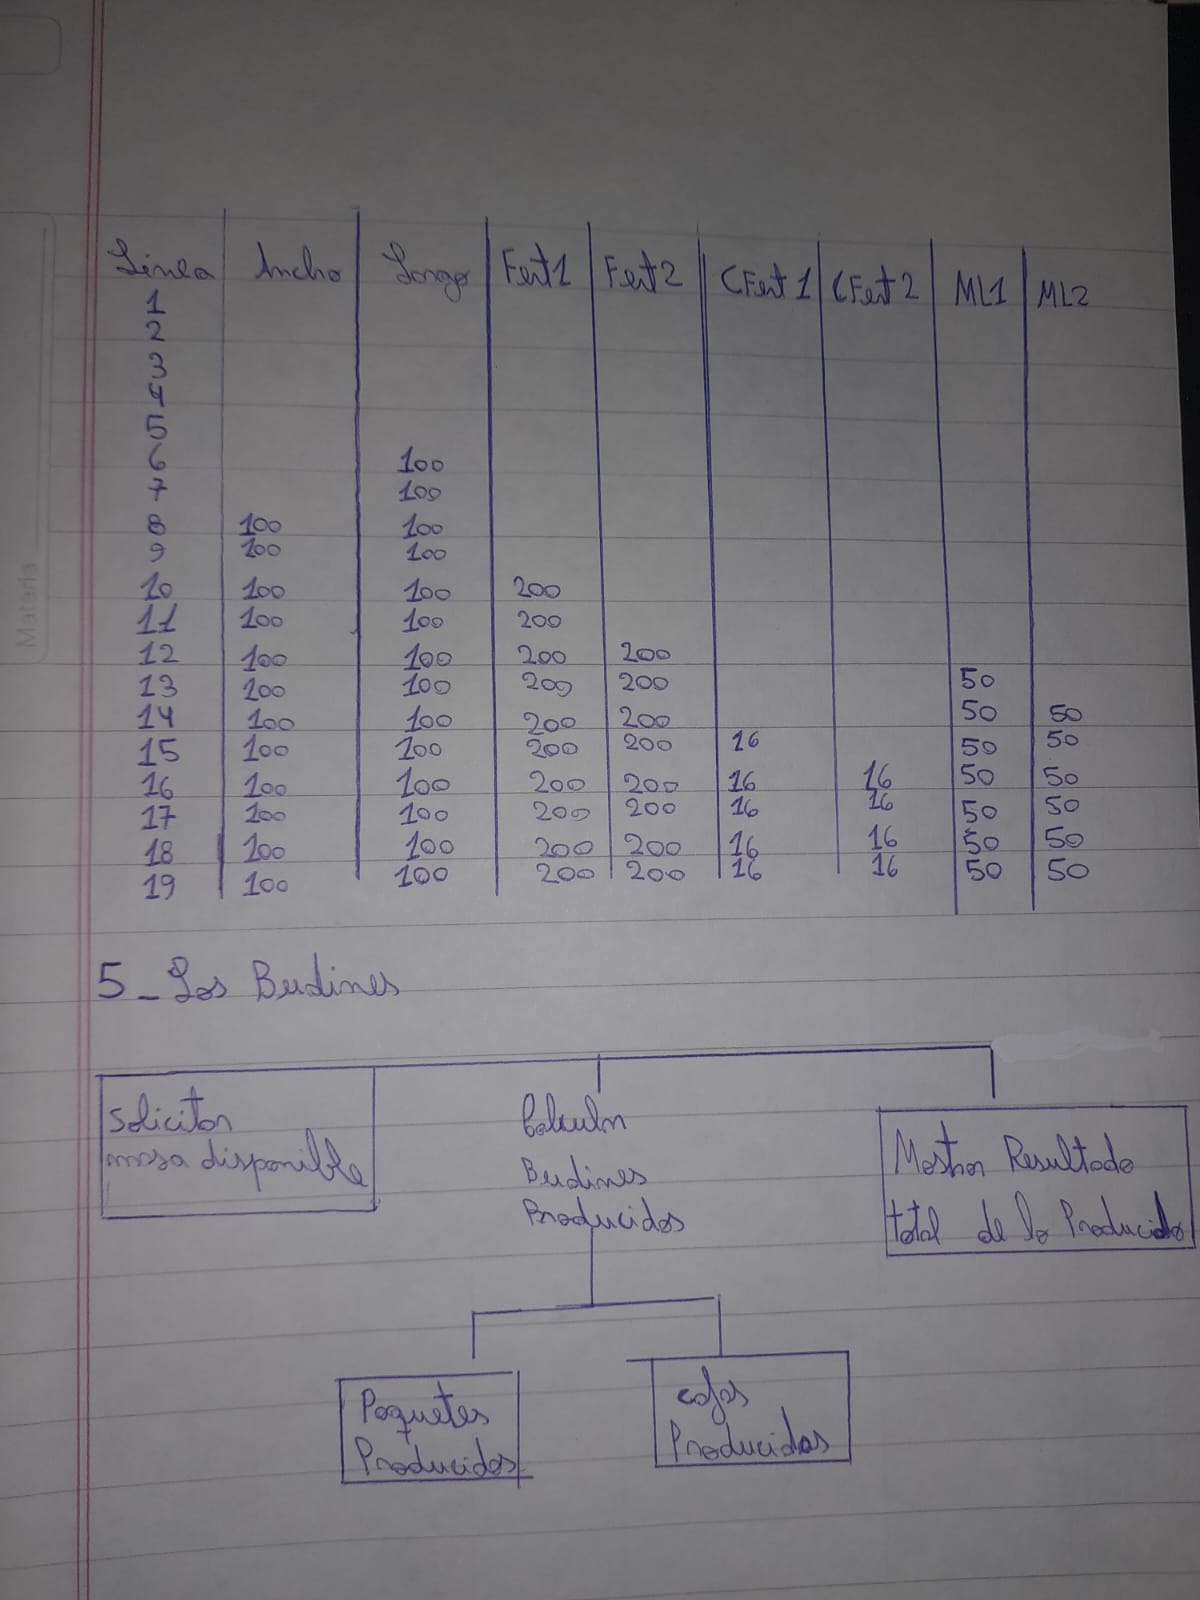 Materia
Linea Ancho Largo Fert1 Fert2 CFert 1 CFert 2 ML1 ML2
1
2
3
4
5
6 100
7 100
8 100 100
9 100 100
10 100 100 200
11 100 100 200
12 100 100 200 200
13 100 100 200 200 50
14 100 100 200 200 50 50
15 100 100 200 200 16 50 50
16 100 100 200 200 16 16 50 50
17 100 100 200 200 16 16 50 50
18 100 100 200 200 16 16 50 50
19 100 100 200 200 16 16 50 50
5_ Los Budines
Solicitar
masa disponible
Calcular
Budines
Producidos
Mostrar Resultado
total de lo Producido
Paquetes
Producidos
cajas
Producidas